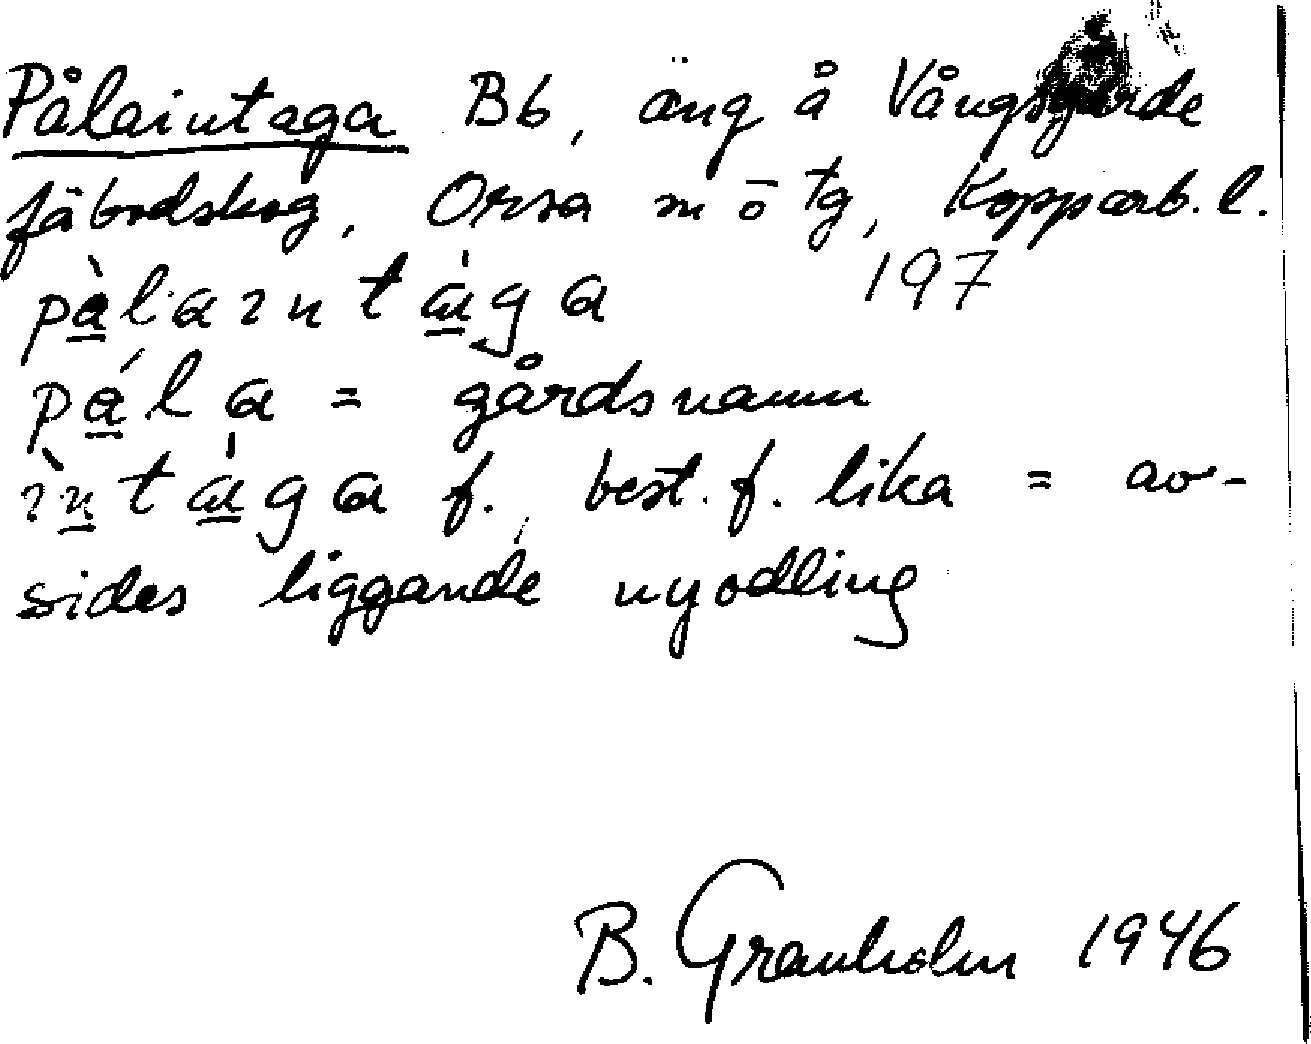 Pålaintaga Bb, äng å Vångsgärde
fäbodskog, Orsa m ō tg, Kopparb. l.
pàlaıntága 197
pála = gårdsnamn
ìntága f., best. f. lika = av-
sides liggande nyodling
B. Granholm 1946